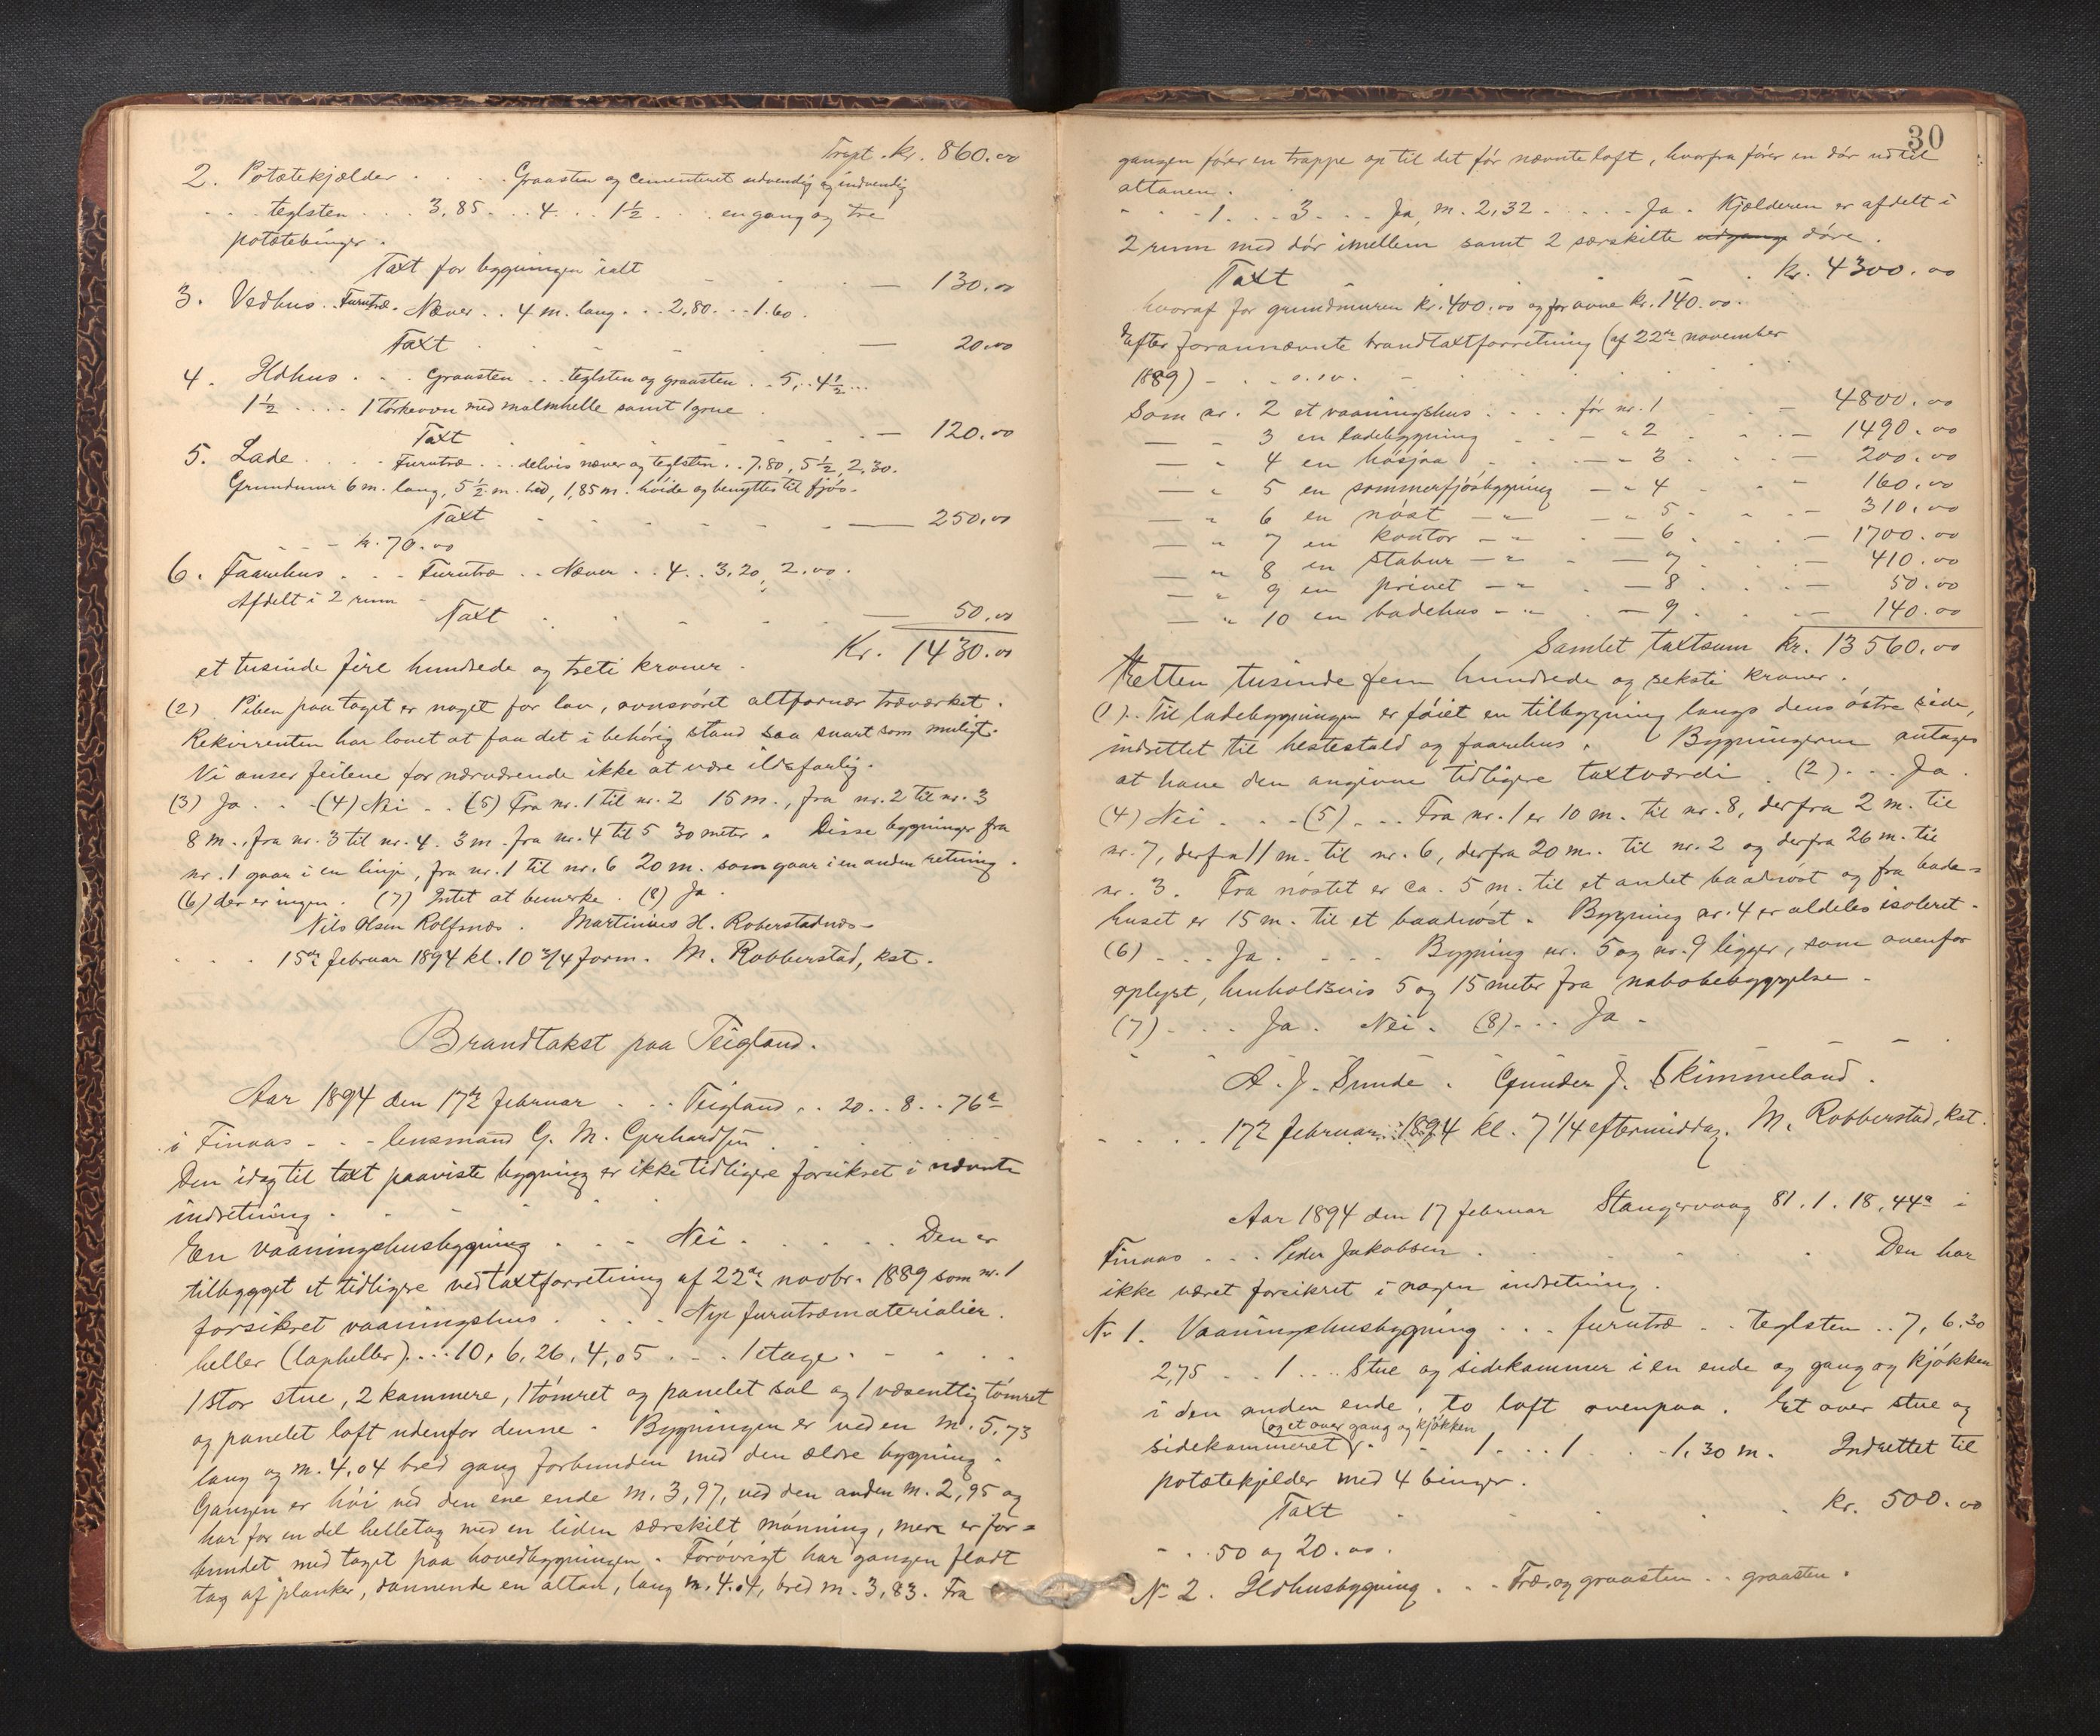 Trspt. kr. 860.00
2. Potetekjælder . . . . Graasten og cementeret udvendig og indvendig
. . . teglsten . . . 3,85 . . 4 . . . 1½ . . . en gang og tre
potetebinger.
Taxt for bygningen ialt — 130.00
3. Vedhus . . Furutræ . Næver . . 4 m. lang . . 2,80 . . 1.60 .
Taxt — 20.00
4. Ildhus . . . Graasten . . teglsten og graasten . . 5, . 4½ . . .
1½ . . . . 1 tørkeovn med malmhelle samt 1 grue .
Taxt — 120.00
5. Lade . . . . Furutræ . . . delvis næver og teglsten . . 7.80, 5½, 2,30.
Grundmur 6 m. lang, 5½ m. bred, 1,85 m. høide og benyttes til fjøs.
Taxt — 250.00
- - - kr. 70.00
6. Faarehus . . . Furutræ . . Næver . . 4 . . 3.20, 2.00 .
Afdelt i 2 rum -
Taxt — 50.00
Kr. 1430.00
et tusinde fire hundrede og treti kroner .
(2) Piben paa taget er noget for lav, ovnsrøret altfornær træværket .
Rekvirenten har lovet at faa det i behørig stand saa snart som muligt.
Vi anser feilene for nærværende ikke at være ildsfarlig.
(3) Ja . . . (4) Nei . . (5) Fra nr. 1 til nr. 2 15 m., fra nr. 2 til nr. 3
8 m., fra nr. 3 til nr. 4. 3 m. fra nr. 4 til 5 30 meter . Disse bygninger fra
nr. 1 gaar i en linje, fra nr. 1 til nr. 6 20 m. som gaar i en anden retning .
(6) der er ingen . (7) Intet at bemerke . (8) Ja .
Nils Olsen Rolfsnæs . Martinius H. Roberstadnæs -
. . . 15de februar 1894 kl. 10 3/4 form. M. Robberstad, kst.
Brandtakst paa Teigland.
Aar 1894 den 17de februar . . . Teigland . . 20 . . 8 . . 76a
i Finaas - . - lensmand G. M. Gerhardsen
Den idag til taxt paaviste bygning er ikke tidligere forsikret i nævnte
indretning .
En vaaningshusbygning . . . Nei . . . . . Den er
tilbygget et tidligere ved taxtforretning af 22de novbr. 1889 som nr. 1
forsikret vaaningshus . . . . Nye furutræmaterialier.
heller (lapheller) . . . 10, 6,26, 4,05 . . . 1 etage . - . . .
1 stor stue, 2 kammere, 1 tømret og panelet sal og 1 væsentlig tømret
og panelet loft udenfor denne . Bygningen er ved en m. 5,73
lang og m. 4,04 bred gang forbunden med den ældre bygning .
Gangen er høi ved den ene ende m. 3,97, ved den anden m. 2,95 og
har for en del helletag med en liden særskilt mønning, mere er for=
bundet med taget paa hovedbygningen . Forøvrigt har gangen fladt
tag af planker, dannende en altan, lang m. 4.04, bred m. 3,83. Fra
30
gangen fører en trappe op til det før nævnte loft, hvorfra fører en dør ud til
altanen .
- . . . 1 . . . 3 . . . Ja, m. 2,32 . . . . . Ja . Kjælderen er afdelt i
2 rum med dør imellem samt 2 særskilte udgange døre .
Taxt kr. 4300.00
hvoraf for grundmuren kr. 400.00 og for ovne kr. 140.00.
Efter forannævnte brandtaxtforretning (af 22de november
1889) - . . - o.s.v. -
Som nr. 2 et vaaningshus . . . . før nr. 1 - 4800.00
— - 3 en ladebygning - . - " 2 . . — 1490.00
— " 4 en høsjaa . . . — " 3 . . — 200.00
— " 5 en sommerfjøsbygning — " 4 . . - 160.00
— " 6 en nøst — " — " 5 . . - 310.00
— " 7 en kontor — " . — 6 . . . — 1700.00
— " 8 en stabur — " — 7 . . . — 410.00
— " 9 en privet — " . — 8 . . . — 50.00
— " 10 en badehus - " . — 9 . . . — 140.00
Samlet taxtsum kr. 13560.00
Tretten tusinde fem hundrede og seksti kroner .
(1) . . Til ladebygningen er føiet en tilbygning langs dens østre side,
indrettet til hestestald og faarehus . Bygningerne antages
at have den angivne tidligere taxtværdi . (2) . . . Ja .
(4) Nei . . . - (5) . . . Fra nr. 1 er 10 m. til nr. 8, derfra 2 m. til
nr. 7, derfra 11 m. til nr. 6, derfra 20 m. til nr. 2 og derfra 26 m. til
nr. 3. Fra nøstet er ca. 5 m. til et andet baadnøst og fra bade=
huset er 15 m. til et baadnøst . Bygning nr. 4 er aldeles isoleret .
(6) . . . Ja . . . . . Bygning nr. 5 og nr. 9 ligger, som ovenfor
oplyst, henholdsvis 5 og 15 meter fra nabobebyggelse .
(7) . . . Ja . Nei . (8) . . . Ja .
A. J. Sunde . Gunder J. Skimmeland .
- . . . 17de februar 1894 kl. 7 1/4 eftermiddag. M. Robberstad, kst.
Aar 1894 den 17 februar Stangervaag 81. 1. 18,44a i
Finaas . . . Peder Jakobsen . . . . . . Den har
ikke været forsikret i nogen indretning .
Nr 1. Vaaningshusbygning . . . furutræ . . teglsten . . 7, 6.30
2,75 . . 1 . . . . Stue og sidekammer i en ende og gang og kjøkken
i den anden ende . to loft ovenpaa . Et over stue og
(og et over gang og kjøkken
sidekammeret) . . - 1 . . . 1 . . . 1,30 m. Indrettet til
potetekjelder med 4 binger .
Taxt kr. 500.00
- . . 50 og 20.00 .
Nr 2. Ildhusbygning . . . Træ og graasten . . graasten .